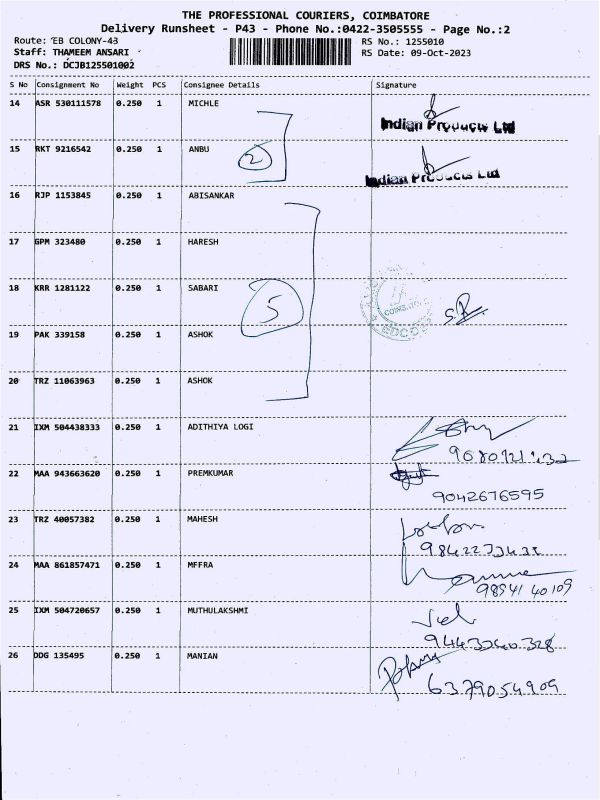 THE PROFESSIONAL COURIERS, COIMBATORE
Delivery Runsheet - P43 - Phone No.:0422-3505555 - Page No.:2
Route: EB COLONY-43 RS No.: 1255010
Staff: THAMEEM ANSARI RS Date: 09-Oct-2023
DRS No.: DCJB125501002
S No Consignment No Weight PCS Consignee Details Signature
14 ASR 530111578 0.250 1 MICHLE
Indian Products Ltd
15 RKT 9216542 0.250 1 ANBU
2
Indian Products Ltd
16 RJP 1153845 0.250 1 ABISANKAR
17 GPM 323480 0.250 1 HARESH
18 KRR 1281122 0.250 1 SABARI
5
19 PAK 339158 0.250 1 ASHOK
20 TRZ 11063963 0.250 1 ASHOK
21 IXM 504438333 0.250 1 ADITHIYA LOGI
22 MAA 943663620 0.250 1 PREMKUMAR
9042676595
23 TRZ 40057382 0.250 1 MAHESH
24 MAA 861857471 0.250 1 MFFRA
98941 40109
25 IXM 504720657 0.250 1 MUTHULAKSHMI
9443040328
26 DDG 135495 0.250 1 MANIAN
6379054909